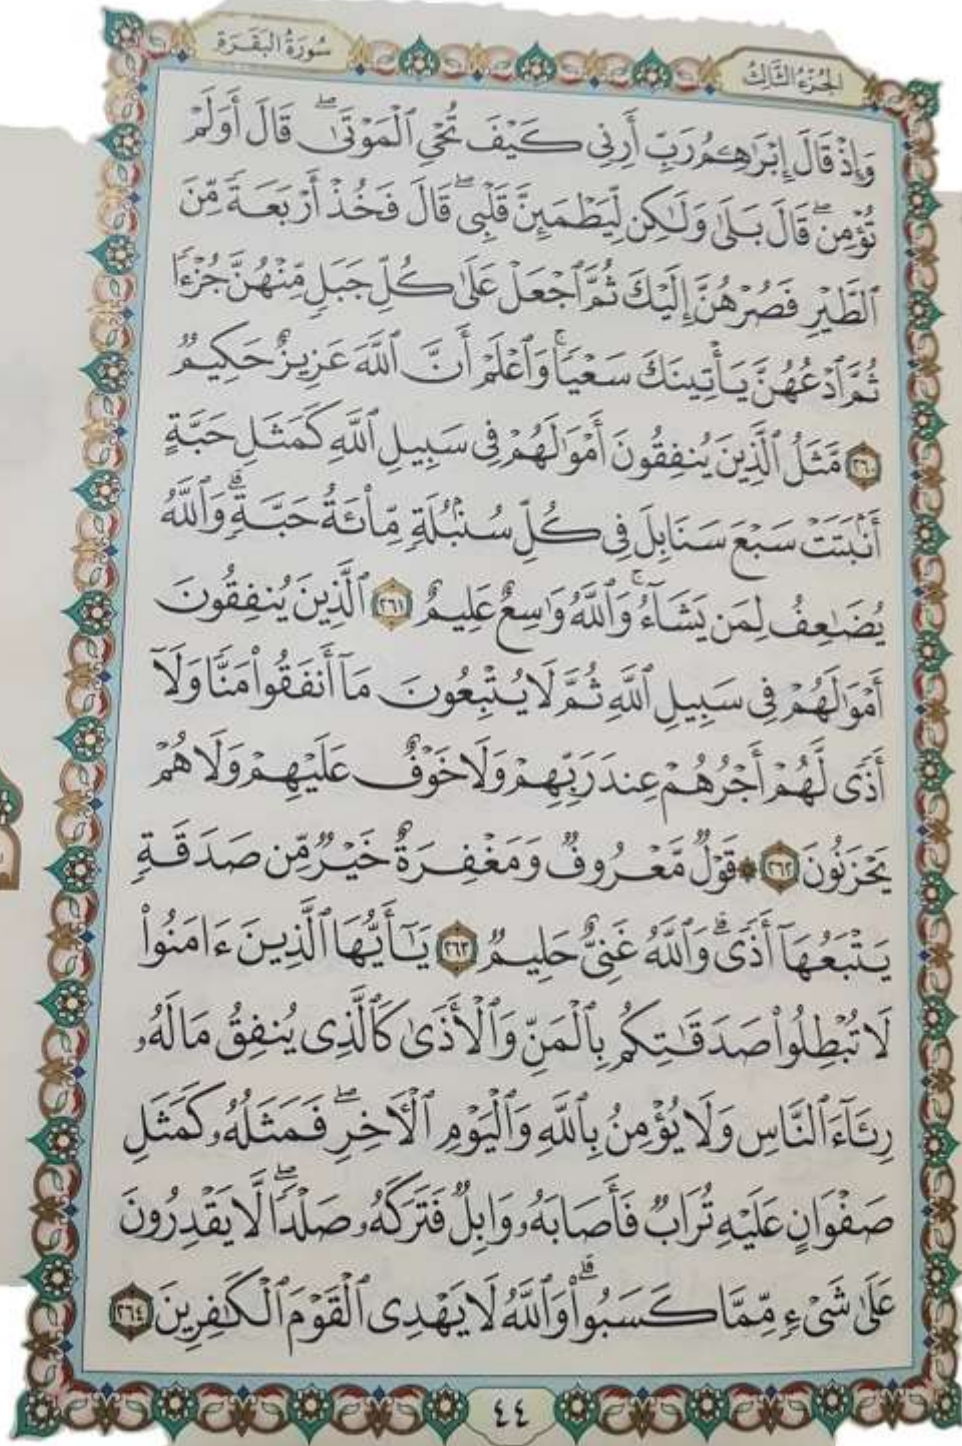 الجُزْءُ الثَّالِثُ
سُورَةُ البَقَرَةِ
وَإِذْ قَالَ إِبْرَٰهِـۧمُ رَبِّ أَرِنِى كَيْفَ تُحْىِ ٱلْمَوْتَىٰ ۖ قَالَ أَوَلَمْ
تُؤْمِن ۖ قَالَ بَلَىٰ وَلَـٰكِن لِّيَطْمَئِنَّ قَلْبِى ۖ قَالَ فَخُذْ أَرْبَعَةً مِّنَ
ٱلطَّيْرِ فَصُرْهُنَّ إِلَيْكَ ثُمَّ ٱجْعَلْ عَلَىٰ كُلِّ جَبَلٍ مِّنْهُنَّ جُزْءًا
ثُمَّ ٱدْعُهُنَّ يَأْتِينَكَ سَعْيًا ۚ وَٱعْلَمْ أَنَّ ٱللَّهَ عَزِيزٌ حَكِيمٌ
٢٦٠ مَّثَلُ ٱلَّذِينَ يُنفِقُونَ أَمْوَٰلَهُمْ فِى سَبِيلِ ٱللَّهِ كَمَثَلِ حَبَّةٍ
أَنۢبَتَتْ سَبْعَ سَنَابِلَ فِى كُلِّ سُنۢبُلَةٍ مِّا۟ئَةُ حَبَّةٍ ۗ وَٱللَّهُ
يُضَـٰعِفُ لِمَن يَشَآءُ ۚ وَٱللَّهُ وَٰسِعٌ عَلِيمٌ ٢٦١ ٱلَّذِينَ يُنفِقُونَ
أَمْوَٰلَهُمْ فِى سَبِيلِ ٱللَّهِ ثُمَّ لَا يُتْبِعُونَ مَآ أَنفَقُوا۟ مَنًّا وَلَآ
أَذًى لَّهُمْ أَجْرُهُمْ عِندَ رَبِّهِمْ وَلَا خَوْفٌ عَلَيْهِمْ وَلَا هُمْ
يَحْزَنُونَ ٢٦٢ ۞ قَوْلٌ مَّعْرُوفٌ وَمَغْفِرَةٌ خَيْرٌ مِّن صَدَقَةٍ
يَتْبَعُهَآ أَذًى ۗ وَٱللَّهُ غَنِىٌّ حَلِيمٌ ٢٦٣ يَـٰٓأَيُّهَا ٱلَّذِينَ ءَامَنُوا۟
لَا تُبْطِلُوا۟ صَدَقَـٰتِكُم بِٱلْمَنِّ وَٱلْأَذَىٰ كَٱلَّذِى يُنفِقُ مَالَهُۥ
رِئَآءَ ٱلنَّاسِ وَلَا يُؤْمِنُ بِٱللَّهِ وَٱلْيَوْمِ ٱلْـَٔاخِرِ ۖ فَمَثَلُهُۥ كَمَثَلِ
صَفْوَانٍ عَلَيْهِ تُرَابٌ فَأَصَابَهُۥ وَابِلٌ فَتَرَكَهُۥ صَلْدًا ۖ لَّا يَقْدِرُونَ
عَلَىٰ شَىْءٍ مِّمَّا كَسَبُوا۟ ۗ وَٱللَّهُ لَا يَهْدِى ٱلْقَوْمَ ٱلْكَـٰفِرِينَ ٢٦٤
٤٤